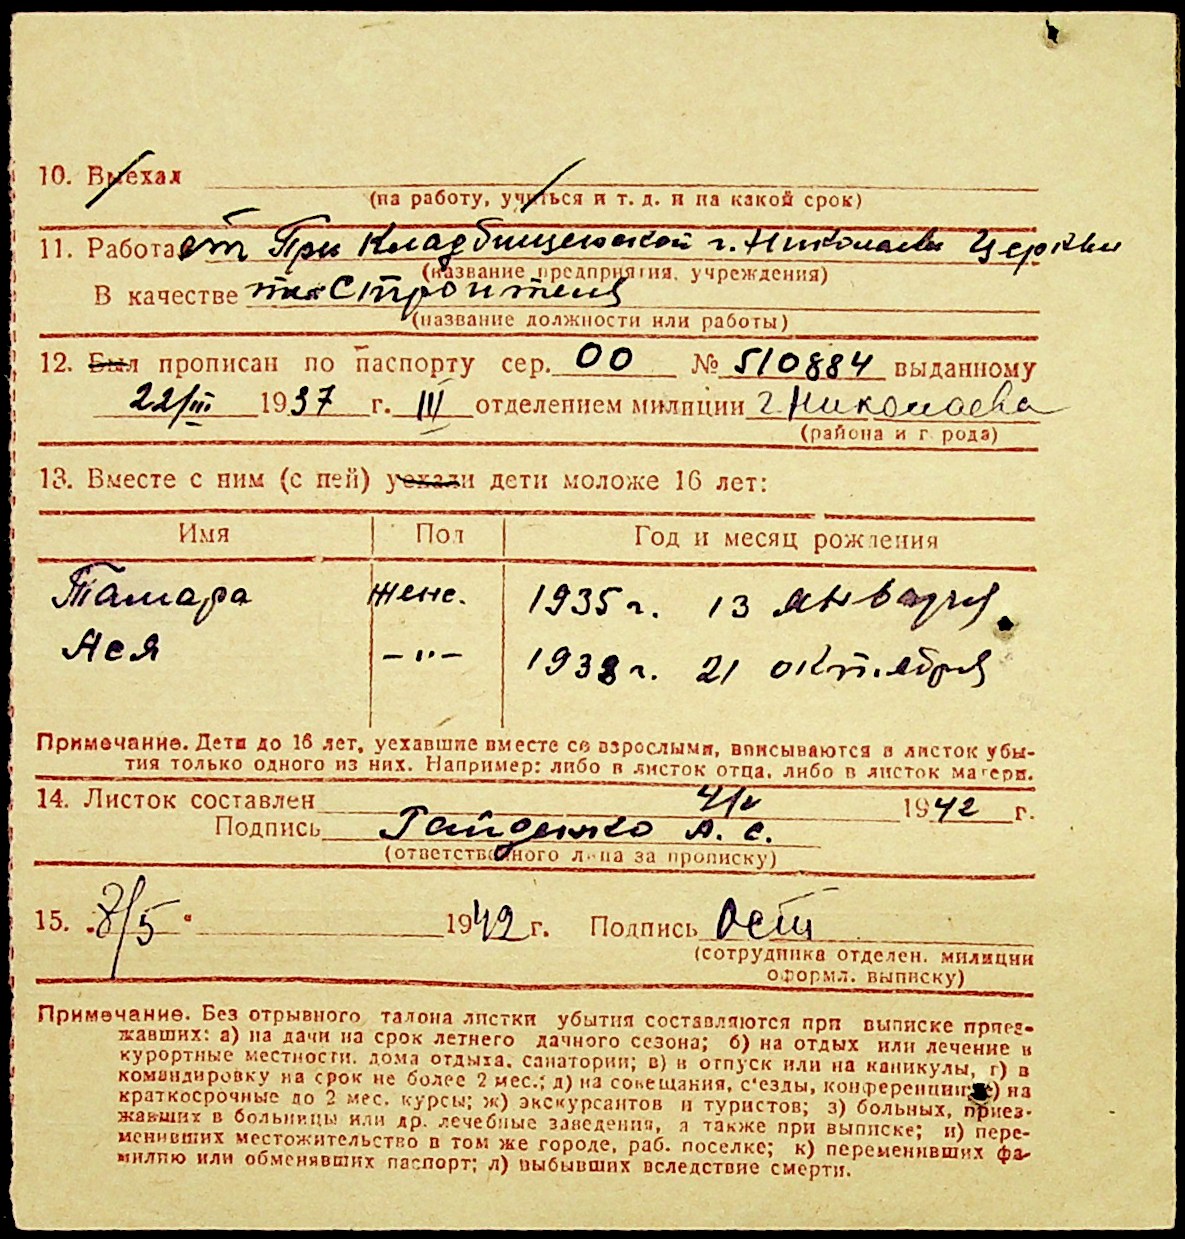 10. Выехал
(на работу, учиться и т. д. и на какой срок)
11. Работает При Кладбищенской г. Николаева Церкви
(название предприятия, учреждения)
В качестве Строителя
(название должности или работы)
12. Был прописан по паспорту сер. 00 № 510884 выданному
22/III 1937 г. III отделением милиции г. Николаева
(района и города)
13. Вместе с ним (с ней) уехали дети моложе 16 лет:
Имя Пол Год и месяц рождения
Тамара женс. 1935 г. 13 января
Ася -"- 1938 г. 21 октября
Примечание. Дети до 16 лет, уехавшие вместе со взрослыми, вписываются в листок убы-
тия только одного из них. Например: либо в листок отца, либо в листок матери.
14. Листок составлен 1942 г.
Подпись Гайденко А. С.
(ответственного лица за прописку)
15. „8/5“ 1942 г. Подпись
(сотрудника отделен. милиции
оформл. выписку)
Примечание. Без отрывного талона листки убытия составляются при выписке приез-
жавших: а) на дачи на срок летнего дачного сезона; б) на отдых или лечение в
курортные местности, дома отдыха, санатории; в) в отпуск или на каникулы, г) в
командировку на срок не более 2 мес.; д) на совещания, с'езды, конференции; е) на
краткосрочные до 2 мес. курсы; ж) экскурсантов и туристов; з) больных, приез-
жавших в больницы или др. лечебные заведения, а также при выписке; и) пере-
менивших местожительство в том же городе, раб. поселке; к) переменивших фа-
милию или обменявших паспорт; л) выбывших вследствие смерти.